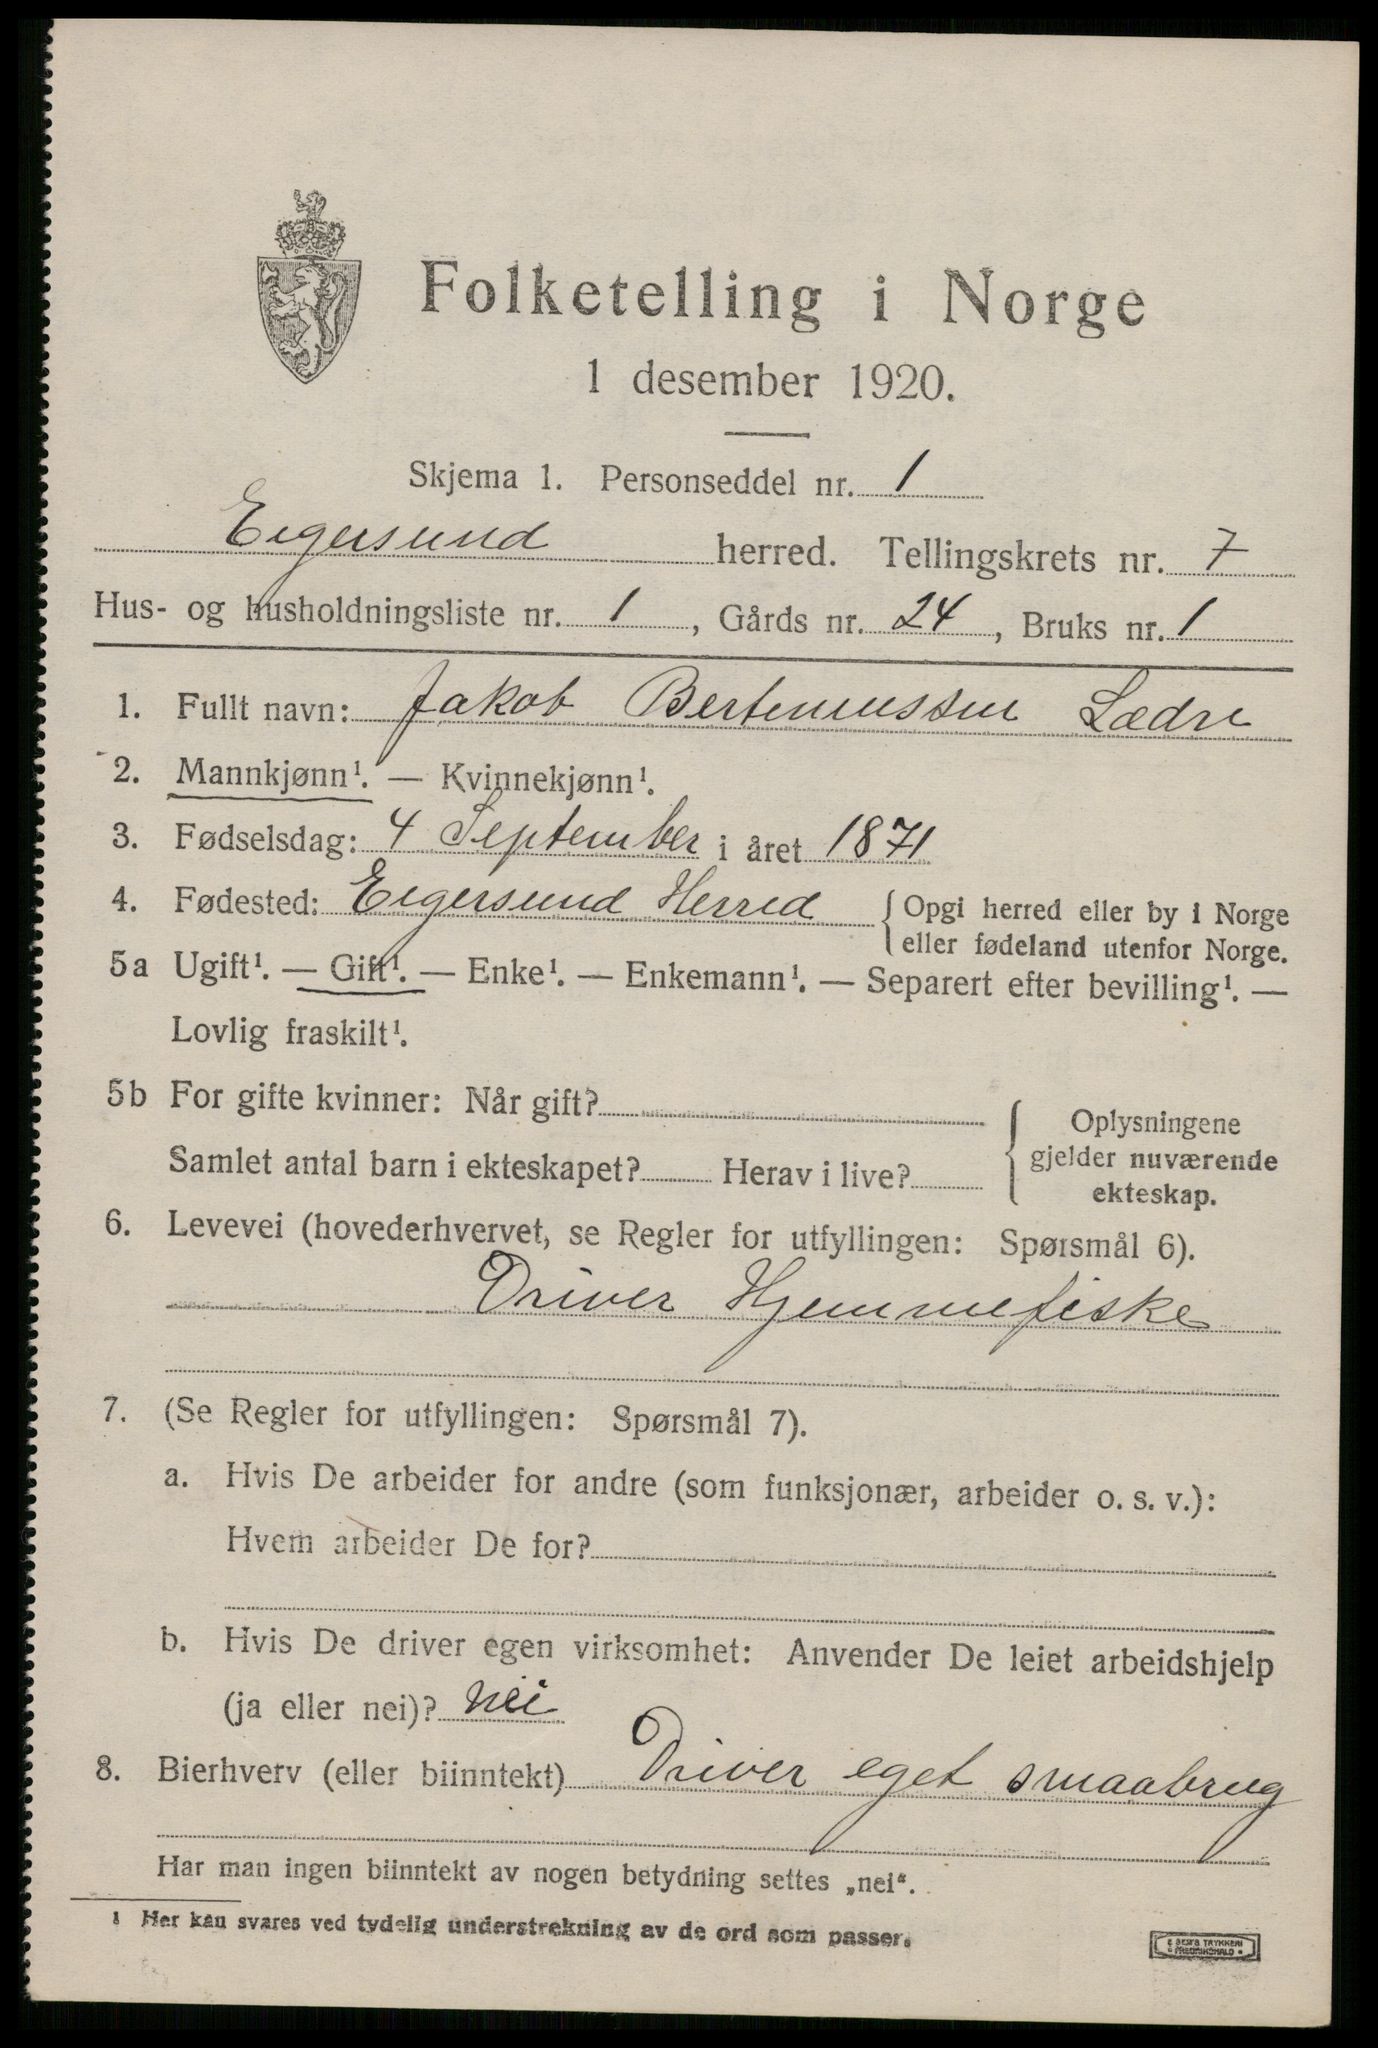 Folketelling i Norge
1 desember 1920.
Skjema 1. Personseddel nr. 1
Eigersund herred. Tellingskrets nr. 7
Hus- og husholdningsliste nr. 1, Gårds nr. 24, Bruks nr. 1
1. Fullt navn: Jakob Bertinussen Lædre
2. Mannkjønn¹. — Kvinnekjønn¹.
3. Fødselsdag: 4 September i året 1871
4. Fødested: Eigersund Herred { Opgi herred eller by i Norge
eller fødeland utenfor Norge.
5a Ugift¹. — Gift¹. — Enke¹. — Enkemann¹. — Separert efter bevilling¹. —
Lovlig fraskilt¹.
5b For gifte kvinner: Når gift?
Samlet antal barn i ekteskapet? Herav i live?
{ Oplysningene
gjelder nuværende
ekteskap.
6. Levevei (hovederhvervet, se Regler for utfyllingen: Spørsmål 6).
Driver Hjemmefiske
7. (Se Regler for utfyllingen: Spørsmål 7).
a. Hvis De arbeider for andre (som funksjonær, arbeider o. s. v.):
Hvem arbeider De for?
b. Hvis De driver egen virksomhet: Anvender De leiet arbeidshjelp
(ja eller nei)? nei
8. Bierhverv (eller biinntekt) Driver eget smaabrug
Har man ingen biinntekt av nogen betydning settes „nei".
1 Her kan svares ved tydelig understrekning av de ord som passer.
TRYKKERI
FREDRIKSHALD